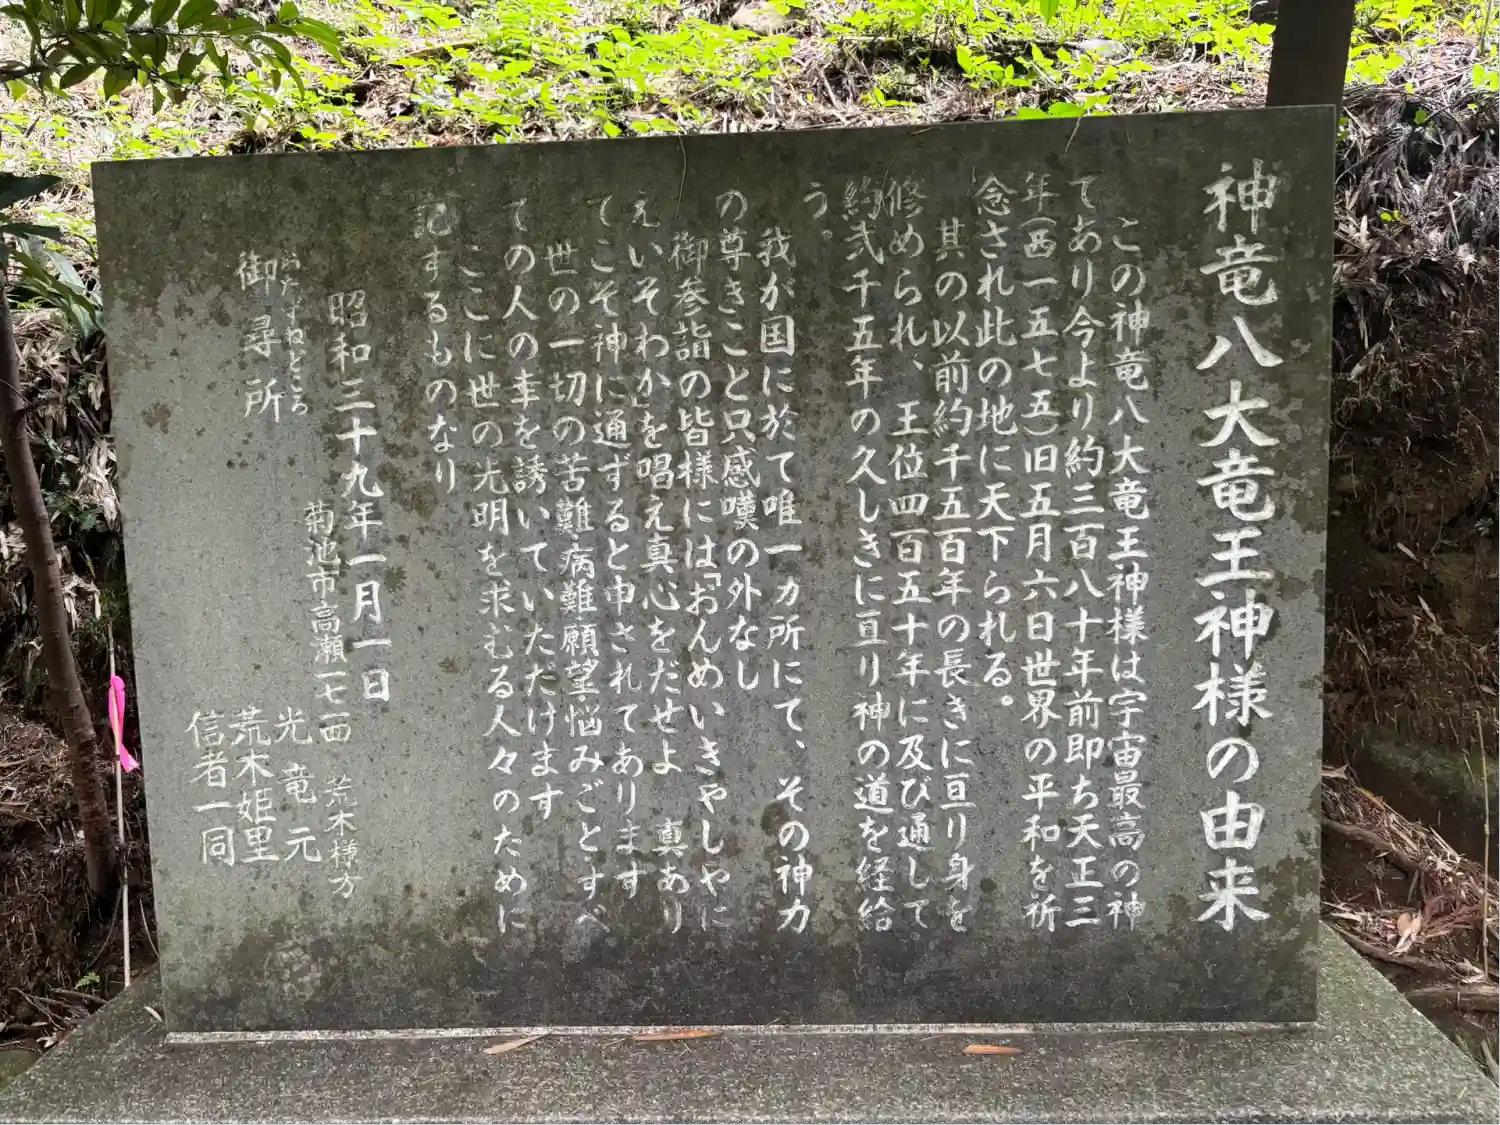 神竜八大竜王神様の由来
この神竜八大竜王神様は宇宙最高の神
であり今より約三百八十年前即ち天正三
年(西一五七五)旧五月六日世界の平和を祈
念され此の地に天下られる。
其の以前約千五百年の長きに亘り身を
修められ、王位四百五十年に及び通して
約弐千五年の久しきに亘り神の道を経給
う。
我が国に於て唯一カ所にて、その神力
の尊きこと只感嘆の外なし
御参詣の皆様には「おんめいきやしやに
えいそわか」を唱え真心をだせよ 真あり
てこそ神に通ずると申されてあります
世の一切の苦難病難願望悩みごとすべ
ての人の幸を誘いていただけます
ここに世の光明を求むる人々のために
記するものなり
昭和三十九年一月一日
菊池市高瀬一七二四 荒木様方
おたずねどころ
御尋所
光竜元
荒木姫里
信者一同